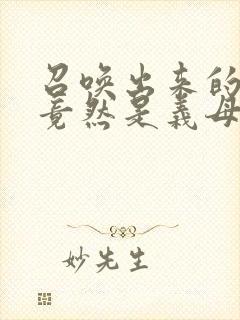 召唤出来的
竟然是义母
妙先生